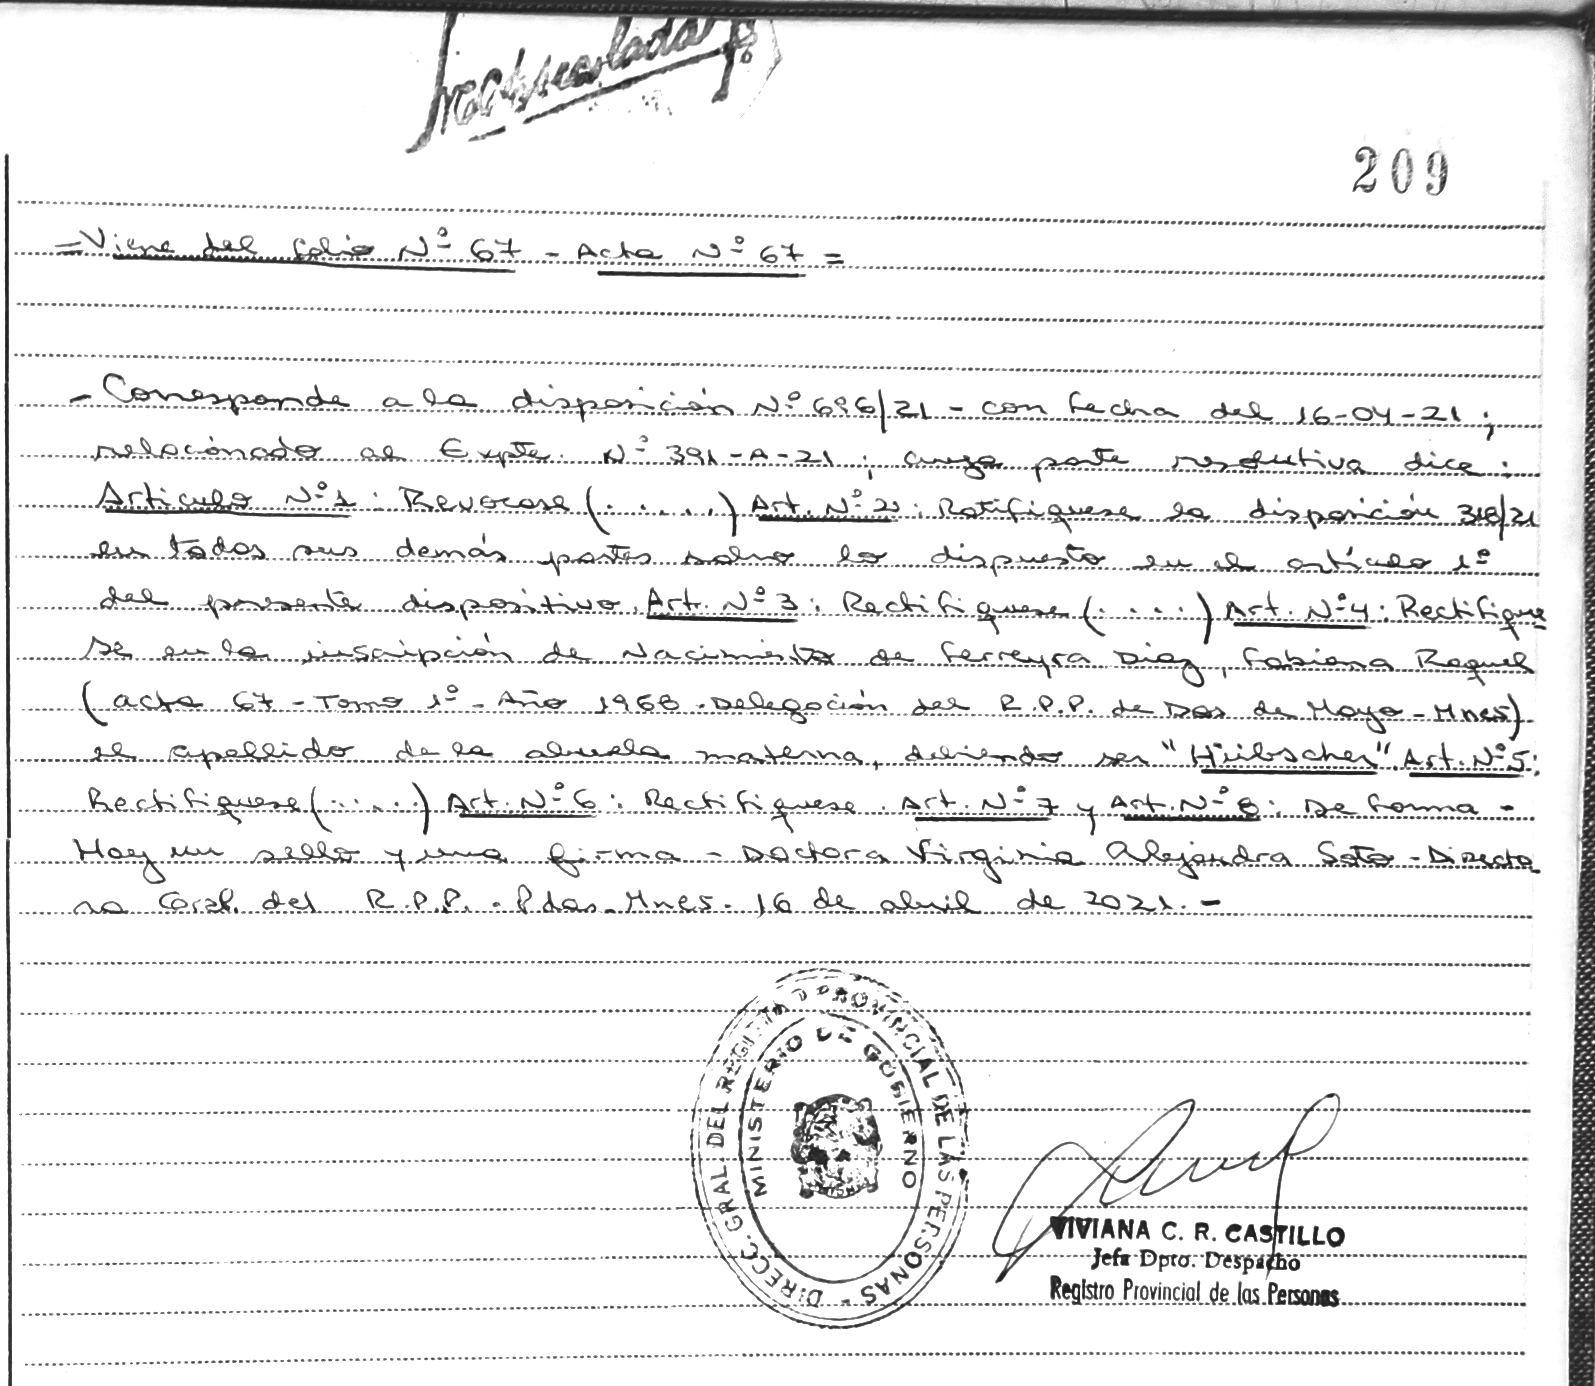 209
=Viene del folio Nº 67 - Acta Nº 67 =
- Corresponde a la disposición Nº 696/21 - con fecha del 16-04-21 ;
relacionado al Expte. Nº 391-A-21 ; cuya parte resolutiva dice :
Articulo Nº1 : Revocase (.....) Art. Nº 2 : Ratifíquese la disposición 318/21
en todas sus demás partes salvo lo dispuesto en el artículo 1º
del presente dispositivo. Art. Nº 3 : Rectifíquese (....) Art. Nº4 : Rectifíque
se en la inscripción de Nacimiento de Ferreyra Diaz, Fabiana Raquel
(acta 67 - Tomo 1º - Año 1968 - Delegación del R.P.P. de Dos de Mayo - Mnes)
el apellido de la abuela materna, debiendo ser "Hübscher". Art. Nº5 :
Rectifíquese (.....) Art. Nº 6 : Rectifíquese. Art. Nº 7 y Art. Nº 8 : De forma -
Hay un sello y una firma - Doctora Virginia Alejandra Soto - Directo
ra Gral. del R.P.P. - Pdas. Mnes. 16 de abril de 2021. -
DIRECC. GRAL. DEL REGISTRO PROVINCIAL DE LAS PERSONAS -
MINISTERIO DE GOBIERNO
VIVIANA C. R. CASTILLO
Jefa Dpto. Despacho
Registro Provincial de las Personas